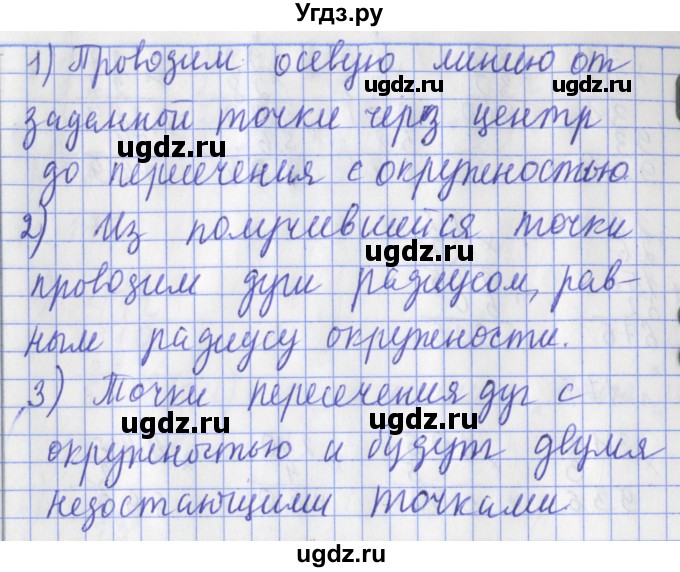 Угдз.ру
1) Проводим осевую линию от
заданной точки через центр
до пересечения с окружностью
2) Из получившейся точки
проводим дуги радиусом, рав-
ным радиусу окружности.
3) Точки пересечения дуг с
окружностью и будут двумя
недостающими точками.
ugdz.ru
ugdz.ru
ugdz.ru
ugdz.ru
ugdz.ru
ugdz.ru
ugdz.ru
ugdz.ru
ugdz.ru
ugdz.ru